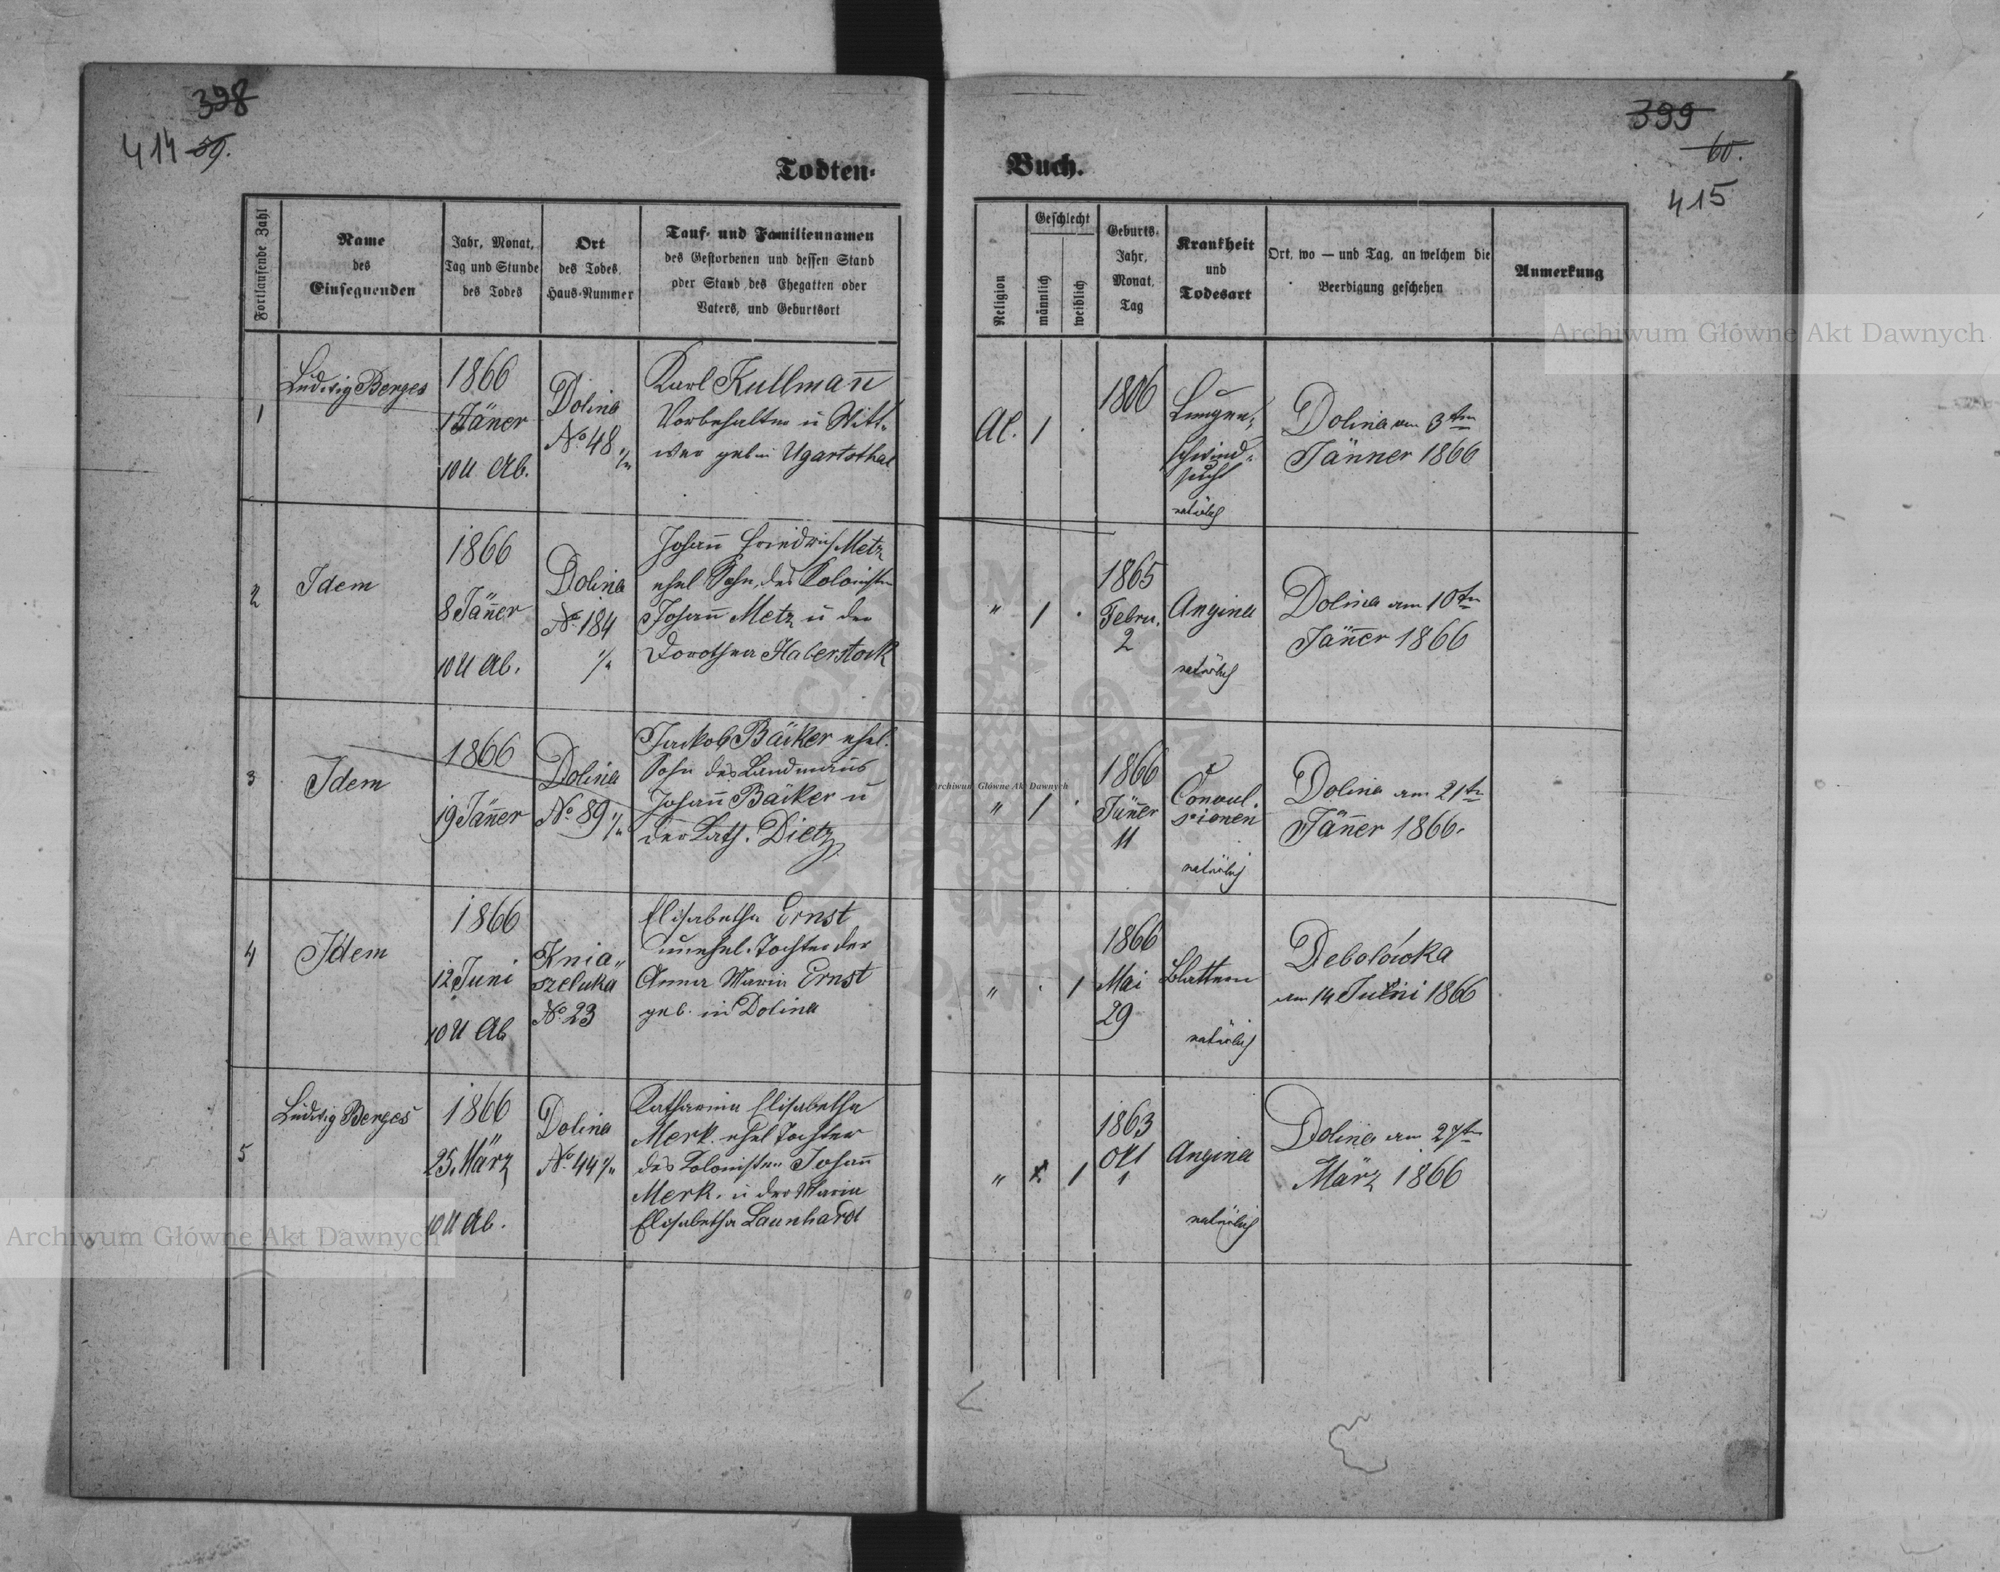 398
414 59.
Todten-
Fortlaufende Zahl
Name
des
Einsegnenden
Jahr, Monat,
Tag und Stunde
des Todes
Ort
des Todes,
Haus-Nummer
Tauf- und Familiennamen
des Gestorbenen und dessen Stand
oder Stand des Ehegatten oder
Vaters, und Geburtsort
1
Ludwig Berges
1866
1 Jäner
10 U Ab.
Dolina
No 48
Karl Kullmann
Vorbehalter u Witt-
wer geb in Ugartsthal
2
Idem
1866
8 Jäner
10 U Ab.
Dolina
No 184
Johann Friedrich Metz
ehel Sohn des Kolonisten
Johann Metz u der
Dorothea Haberstock
3
Idem
1866
19 Jäner
Dolina
No 89
Jackob Bäiker ehel.
Sohn des Landmanns
Johann Bäiker u
der Kath. Dietz
4
Idem
1866
12 Juni
10 U Ab
Knia-
szeluka
No 23
Elisabetha Ernst
unehel. Tochter der
Anna Maria Ernst
geb. in Dolina
5
Ludwig Berges
1866
25 März
10 U Ab.
Dolina
No 44
Katharina Elisabetha
Merk. ehel Tochter
des Kolonisten Johann
Merk. u der Maria
Elisabetha Launhardt
399
60.
415
Buch.
Religion
Geschlecht
männlich
weiblich
Geburts-
Jahr,
Monat,
Tag
Krankheit
und
Todesart
Ort, wo — und Tag, an welchem die
Beerdigung geschehen
Anmerkung
AC. 1 .
1806
Lungen-
schwind-
sucht
natürlich
Dolina am 3ten
Jänner 1866
" 1 .
1865
Febru.
2
Angina
natürlich
Dolina am 10ten
Jäner 1866
" 1 .
1866
Jäner
11
Convul-
sionen
natürlich
Dolina am 21ten
Jäner 1866.
" . 1
1866
Mai
29
Blattern
natürlich
Debolówka
am 14 Juni 1866
" 1
1863
Okt
1
Angina
natürlich
Dolina am 27ten
März 1866
Archiwum Główne Akt Dawnych
Archiwum Główne Akt Dawnych
Archiwum Główne Akt Dawnych